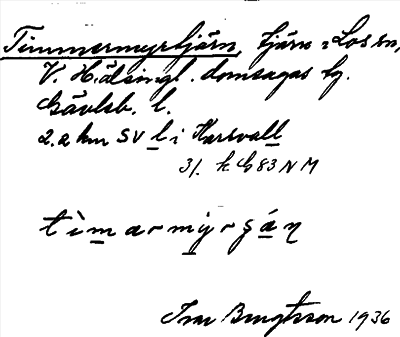 Timmermyrtjärn, tjärn i Los sn,
V. Hälsingl. domsagas tg.
Gävleb. l.
2.2 km SV l i Karsvall
31. k G 83 N M
tìmarmyrgáṇ
Ivar Bengtsson 1936